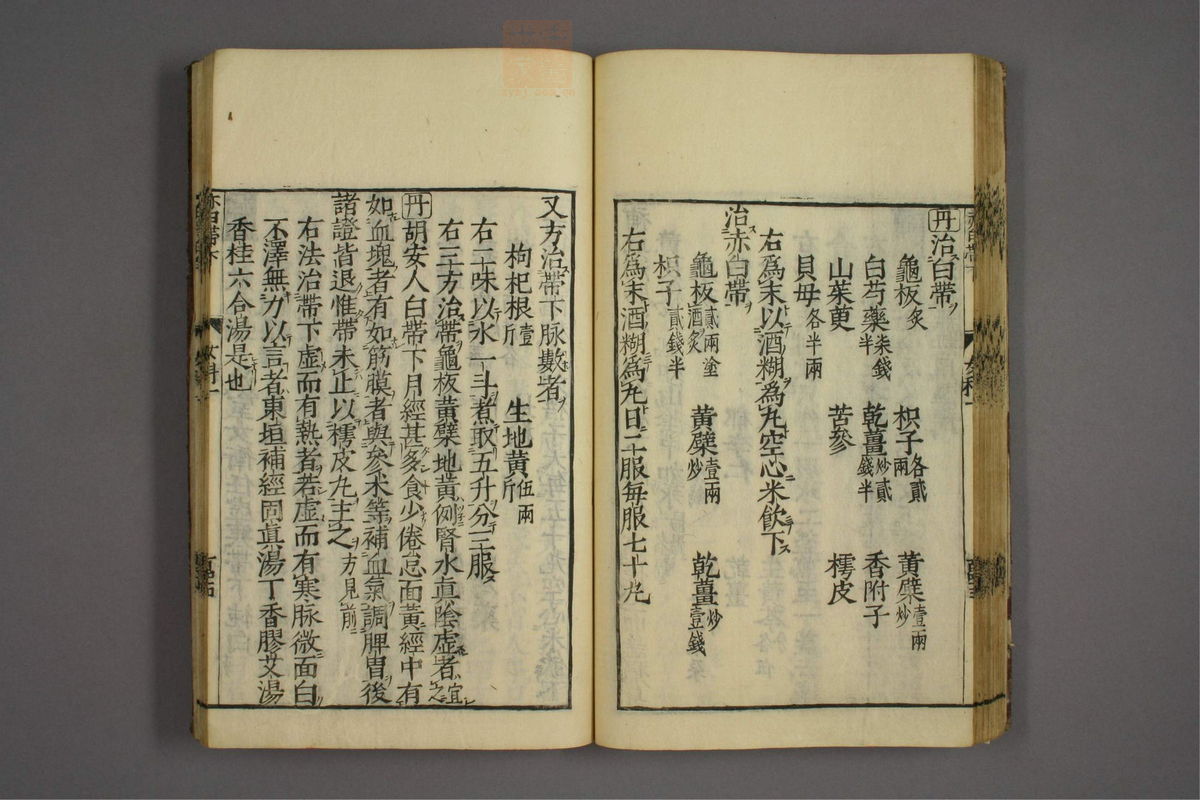 丹治白帶
龜板炙 枳子各貳兩 黃檗炒壹兩
白芍藥柒錢半 乾薑炒貳錢半 香附子
山茱萸 苦參 樗皮
貝母各半兩
右爲末以酒糊爲丸空心米飲下
治赤白帶
龜板貳兩塗酒炙 黃檗壹兩炒 乾薑炒壹錢
枳子貳錢半
右爲末酒糊爲丸日二服每服七十丸
又方治帶下脉數者
枸杞根壹斤 生地黃伍兩斤
右二味以水一斗煮取五升分三服
右三方治帶龜板黃檗地黃例腎水眞陰虛者宜之
丹胡安人白帶下月經甚多食少倦怠面黃經中有
如血塊者有如筋膜者與參朮等補血氣調脾胃後
諸證皆退惟帶未止以樗皮丸主之方見前
右法治帶下虛而有熱者若虛而有寒脉微面白
不澤無力以言者東垣補經固眞湯丁香膠艾湯
香桂六合湯是也